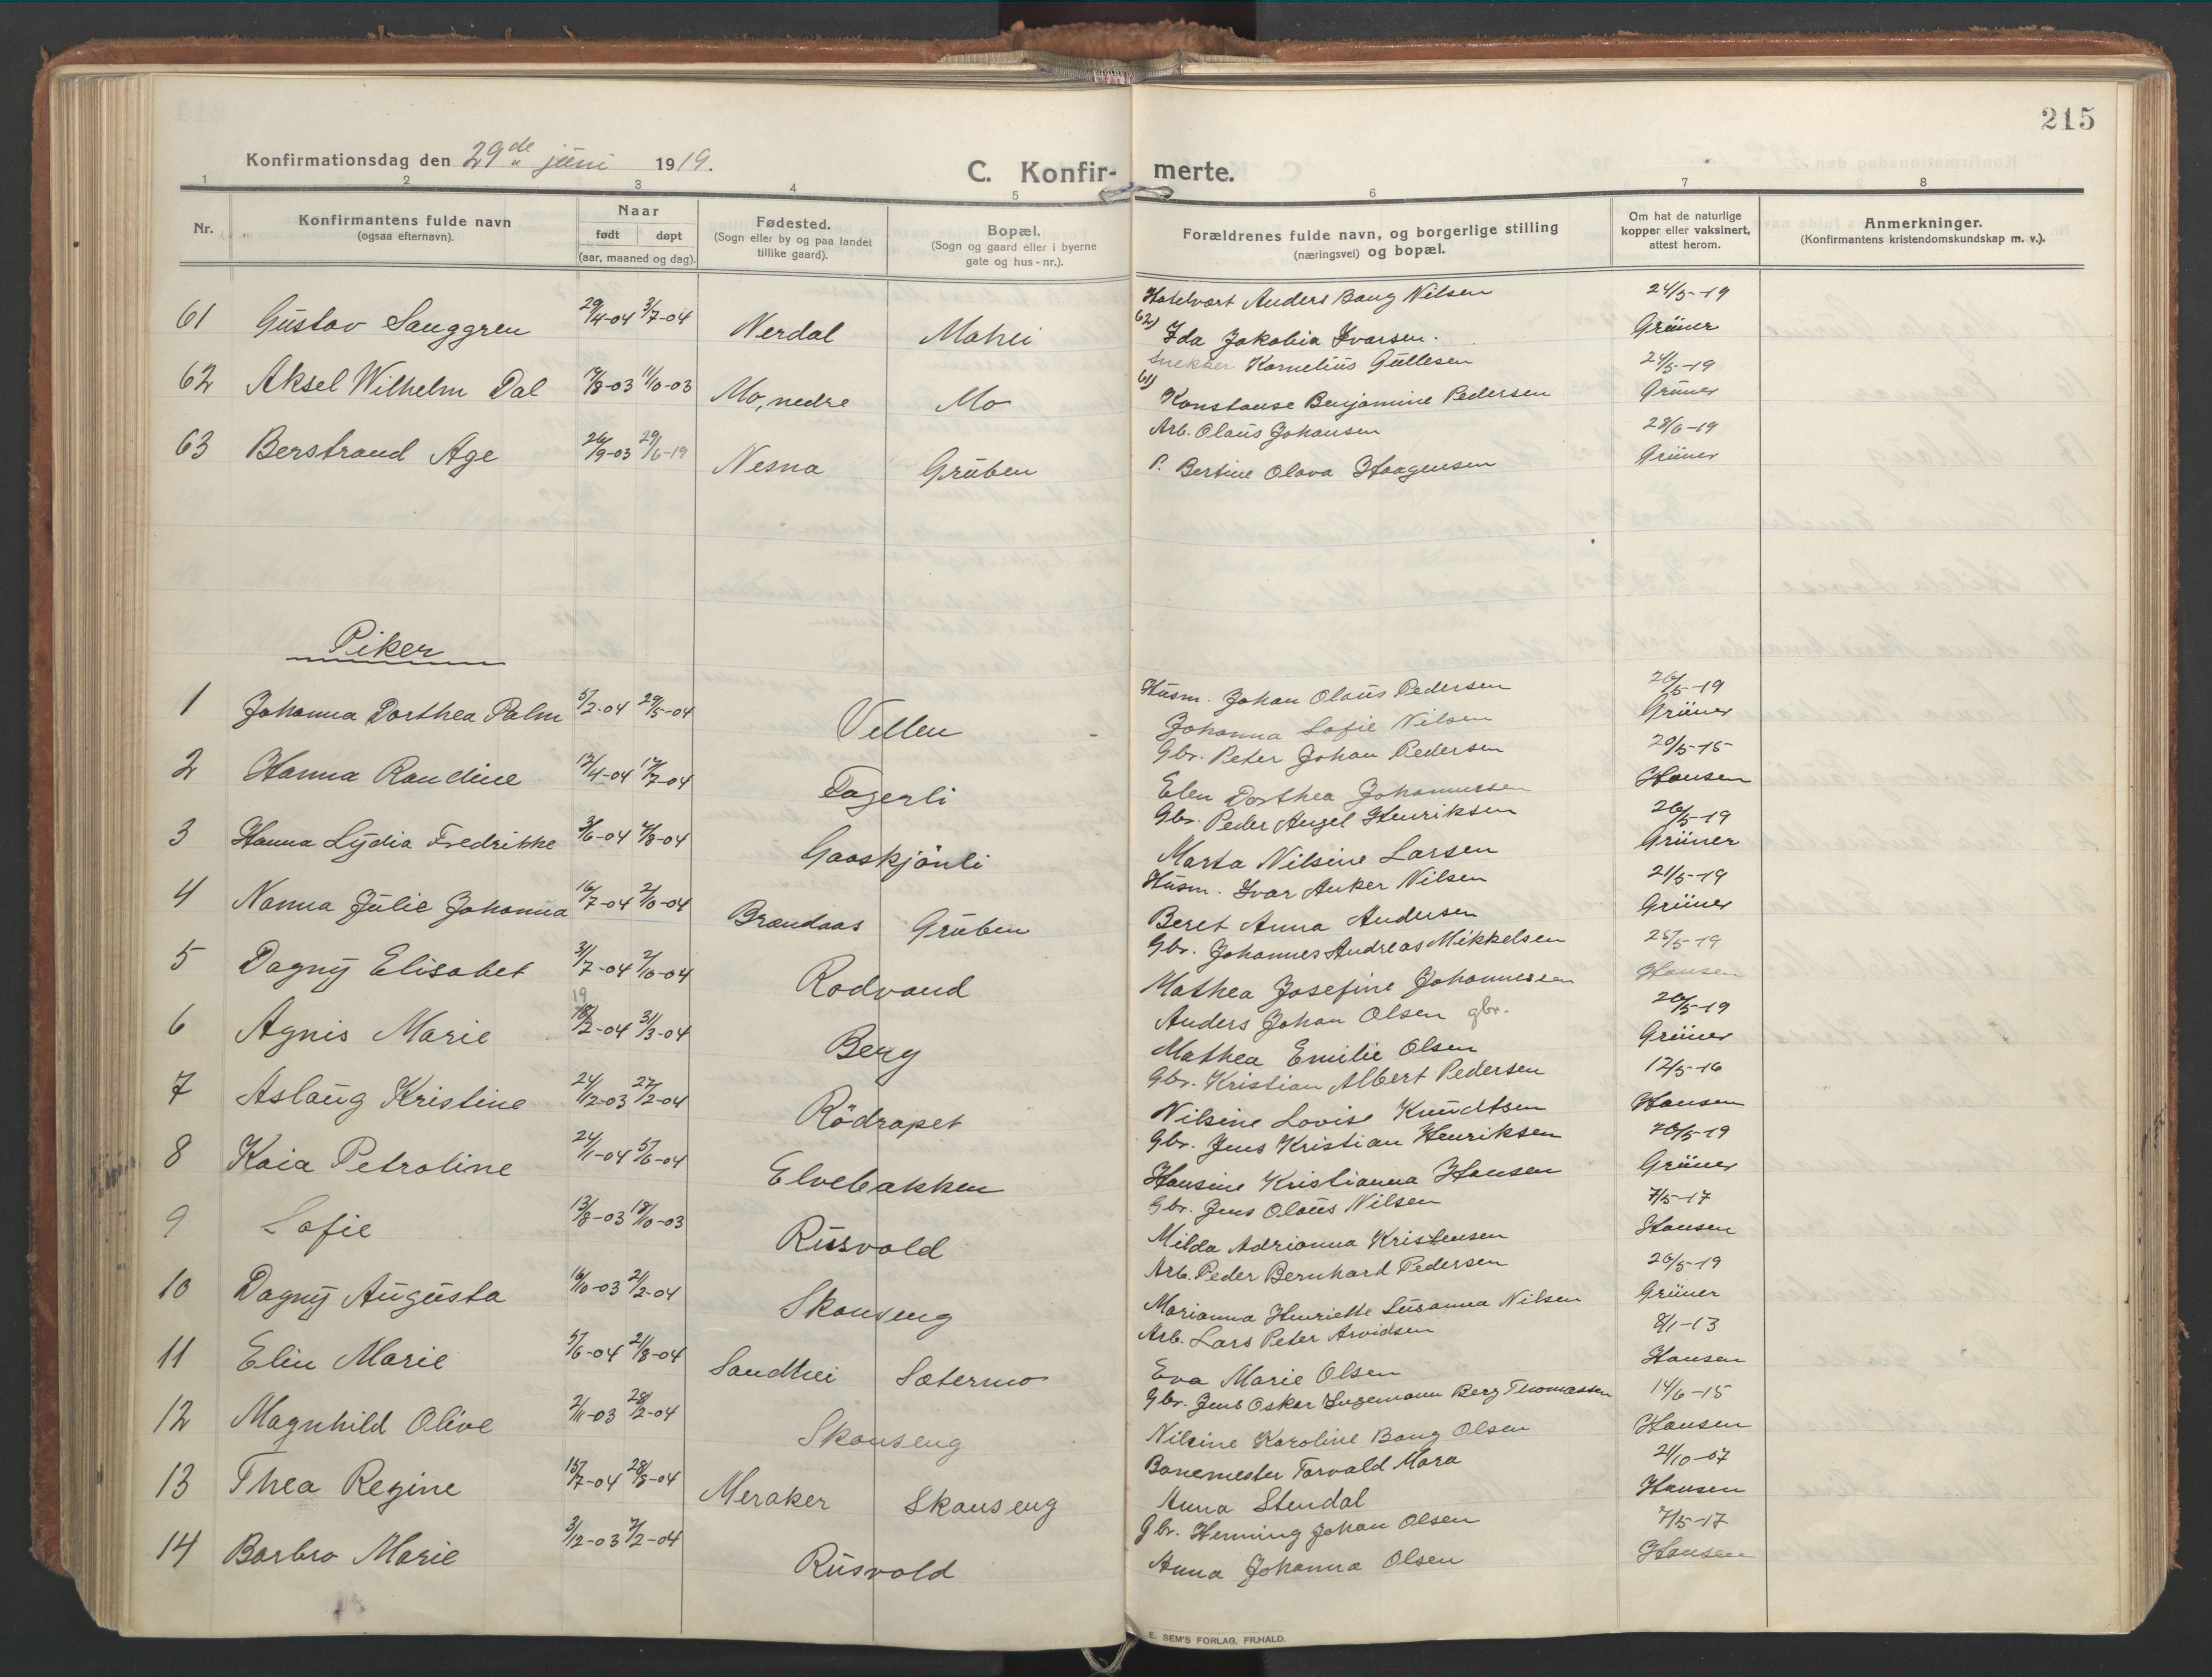 215
Konfirmationsdag den 29de juni 1919.
C. Konfir- merte.
1 2 3 4 5 6 7 8
Nr.
Konfirmantens fulde navn
(ogsaa efternavn).
Naar
født døpt
(aar, maaned og dag).
Fødested.
(Sogn eller by og paa landet
tillike gaard).
Bopæl.
(Sogn og gaard eller i byerne
gate og hus-nr.).
Forældrenes fulde navn, og borgerlige stilling
(næringsvei) og bopæl.
Om hat de naturlige
kopper eller vaksinert,
attest herom.
Anmerkninger.
(Konfirmantens kristendomskundskap m. v.).
61 Gustav Sauggren 29/4-04 3/7-04 Nerdal Mohei Hotelvært Anders Baug Nilsen 24/5-19
62) Ida Jakobia Ivarsen. Grüner
62 Aksel Wilhelm Dal 17/8-03 11/10-03 Mo, nedre Mo Snekker Kornelius Gullesen 24/5-19
61) Konstanse Benjamine Pedersen Grüner
63 Berstrand Age 26/9-03 29/6-19 Nesna Gruben Arb. Olaus Johansen 28/6-19
P. Bertine Olava Haagensen Grüner
Piker
1 Johanna Dorthea Palm 5/2-04 29/5-04 Vellen Husm. Johan Olaus Pedersen 26/5-19
Johanna Sofie Nilsen Grüner
2 Hanna Randine 12/4-04 17/7-04 Fagerli Gbr. Peter Johan Pedersen 20/5-15
Elen Dorthea Johannessen Hansen
3 Hanna Lydia Fredrikke 3/6-04 7/8-04 Gaaskjönli Gbr. Peder Angel Henriksen 26/5-19
Marta Nilsine Larsen Grüner
4 Nanna Julie Johanna 16/7-04 2/10-04 Brændaas Gruben Husm. Ivar Anker Nilsen 24/5-19
Beret Anna Andersen Grüner
5 Dagny Elisabet 31/7-04 2/10-04 Rodvand Gbr. Johannes Andreas Mikkelsen 25/5-19
Mathea Josefine Johannessen Hansen
6 Agnis Marie 19 18/2-04 31/3-04 Berg Anders Johan Olsen gbr. 26/5-19
Mathea Emilie Olsen Grüner
7 Aslaug Kristine 24/12-03 27/2-04 Rödrapet Gbr. Kristian Albert Pedersen 12/5-16
Nilsine Lovise Knudtsen Hansen
8 Kaia Petroline 24/1-04 5/6-04 Elvebakken Gbr. Jens Kristian Henriksen 26/5-19
Hansine Kristianna Hansen Grüner
9 Sofie 13/8-03 18/10-03 Rusvold Gbr. Jens Olaus Nilsen 7/5-17
Milda Adrianna Kristensen Hansen
10 Dagny Augusta 16/10-03 21/2-04 Skonseng Arb. Peder Bernhard Pedersen 26/5-19
Marianna Henriette Susanna Nilsen Grüner
11 Elin Marie 5/6-04 21/8-04 Sandhei Sætermo Arb. Lars Peter Arvidsen 8/1-13
Eva Marie Olsen Hansen
12 Magnhild Olive 2/11-03 28/2-04 Skonseng Gbr. Jens Oskar Ingemann Berg Thomassen 14/6-15
Nilsine Karoline Bang Olsen Hansen
13 Thea Regine 15/7-04 28/8-04 Meraker Skonseng Banemester Torvald Mora 21/10-07
Anna Stendal Hansen
14 Barbro Marie 3/12-03 7/2-04 Rusvold Gbr. Henning Johan Olsen 7/5-17
Anna Johanna Olsen Hansen
E. SEM'S FORLAG, FR.HALD.